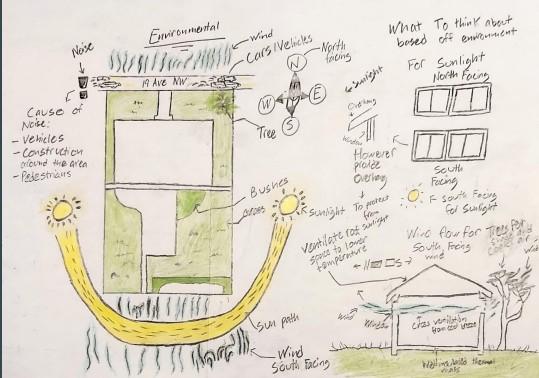 Environmental
Wind
Cars/Vehicles
North
facing
Noise
19 AVE NW
N
W
E
S
Tree
Cause of
Noise:
- Vehicles
- Construction
around the area
- Pedestrians
Bushes
Sunlight
Sun path
Wind
South Facing
What To think about
based off environment
For Sunlight
North Facing
Sunlight
Overhang
Window
However
provide
Overhang
To protect
from
sunlight
South
Facing
South Facing
for Sunlight
Ventilate roof
space to lower
temperature
Wind flow for
South Facing
wind
Trees For
N
S
Wind
Window
Cross ventilation
from cool breeze
thermal
mass